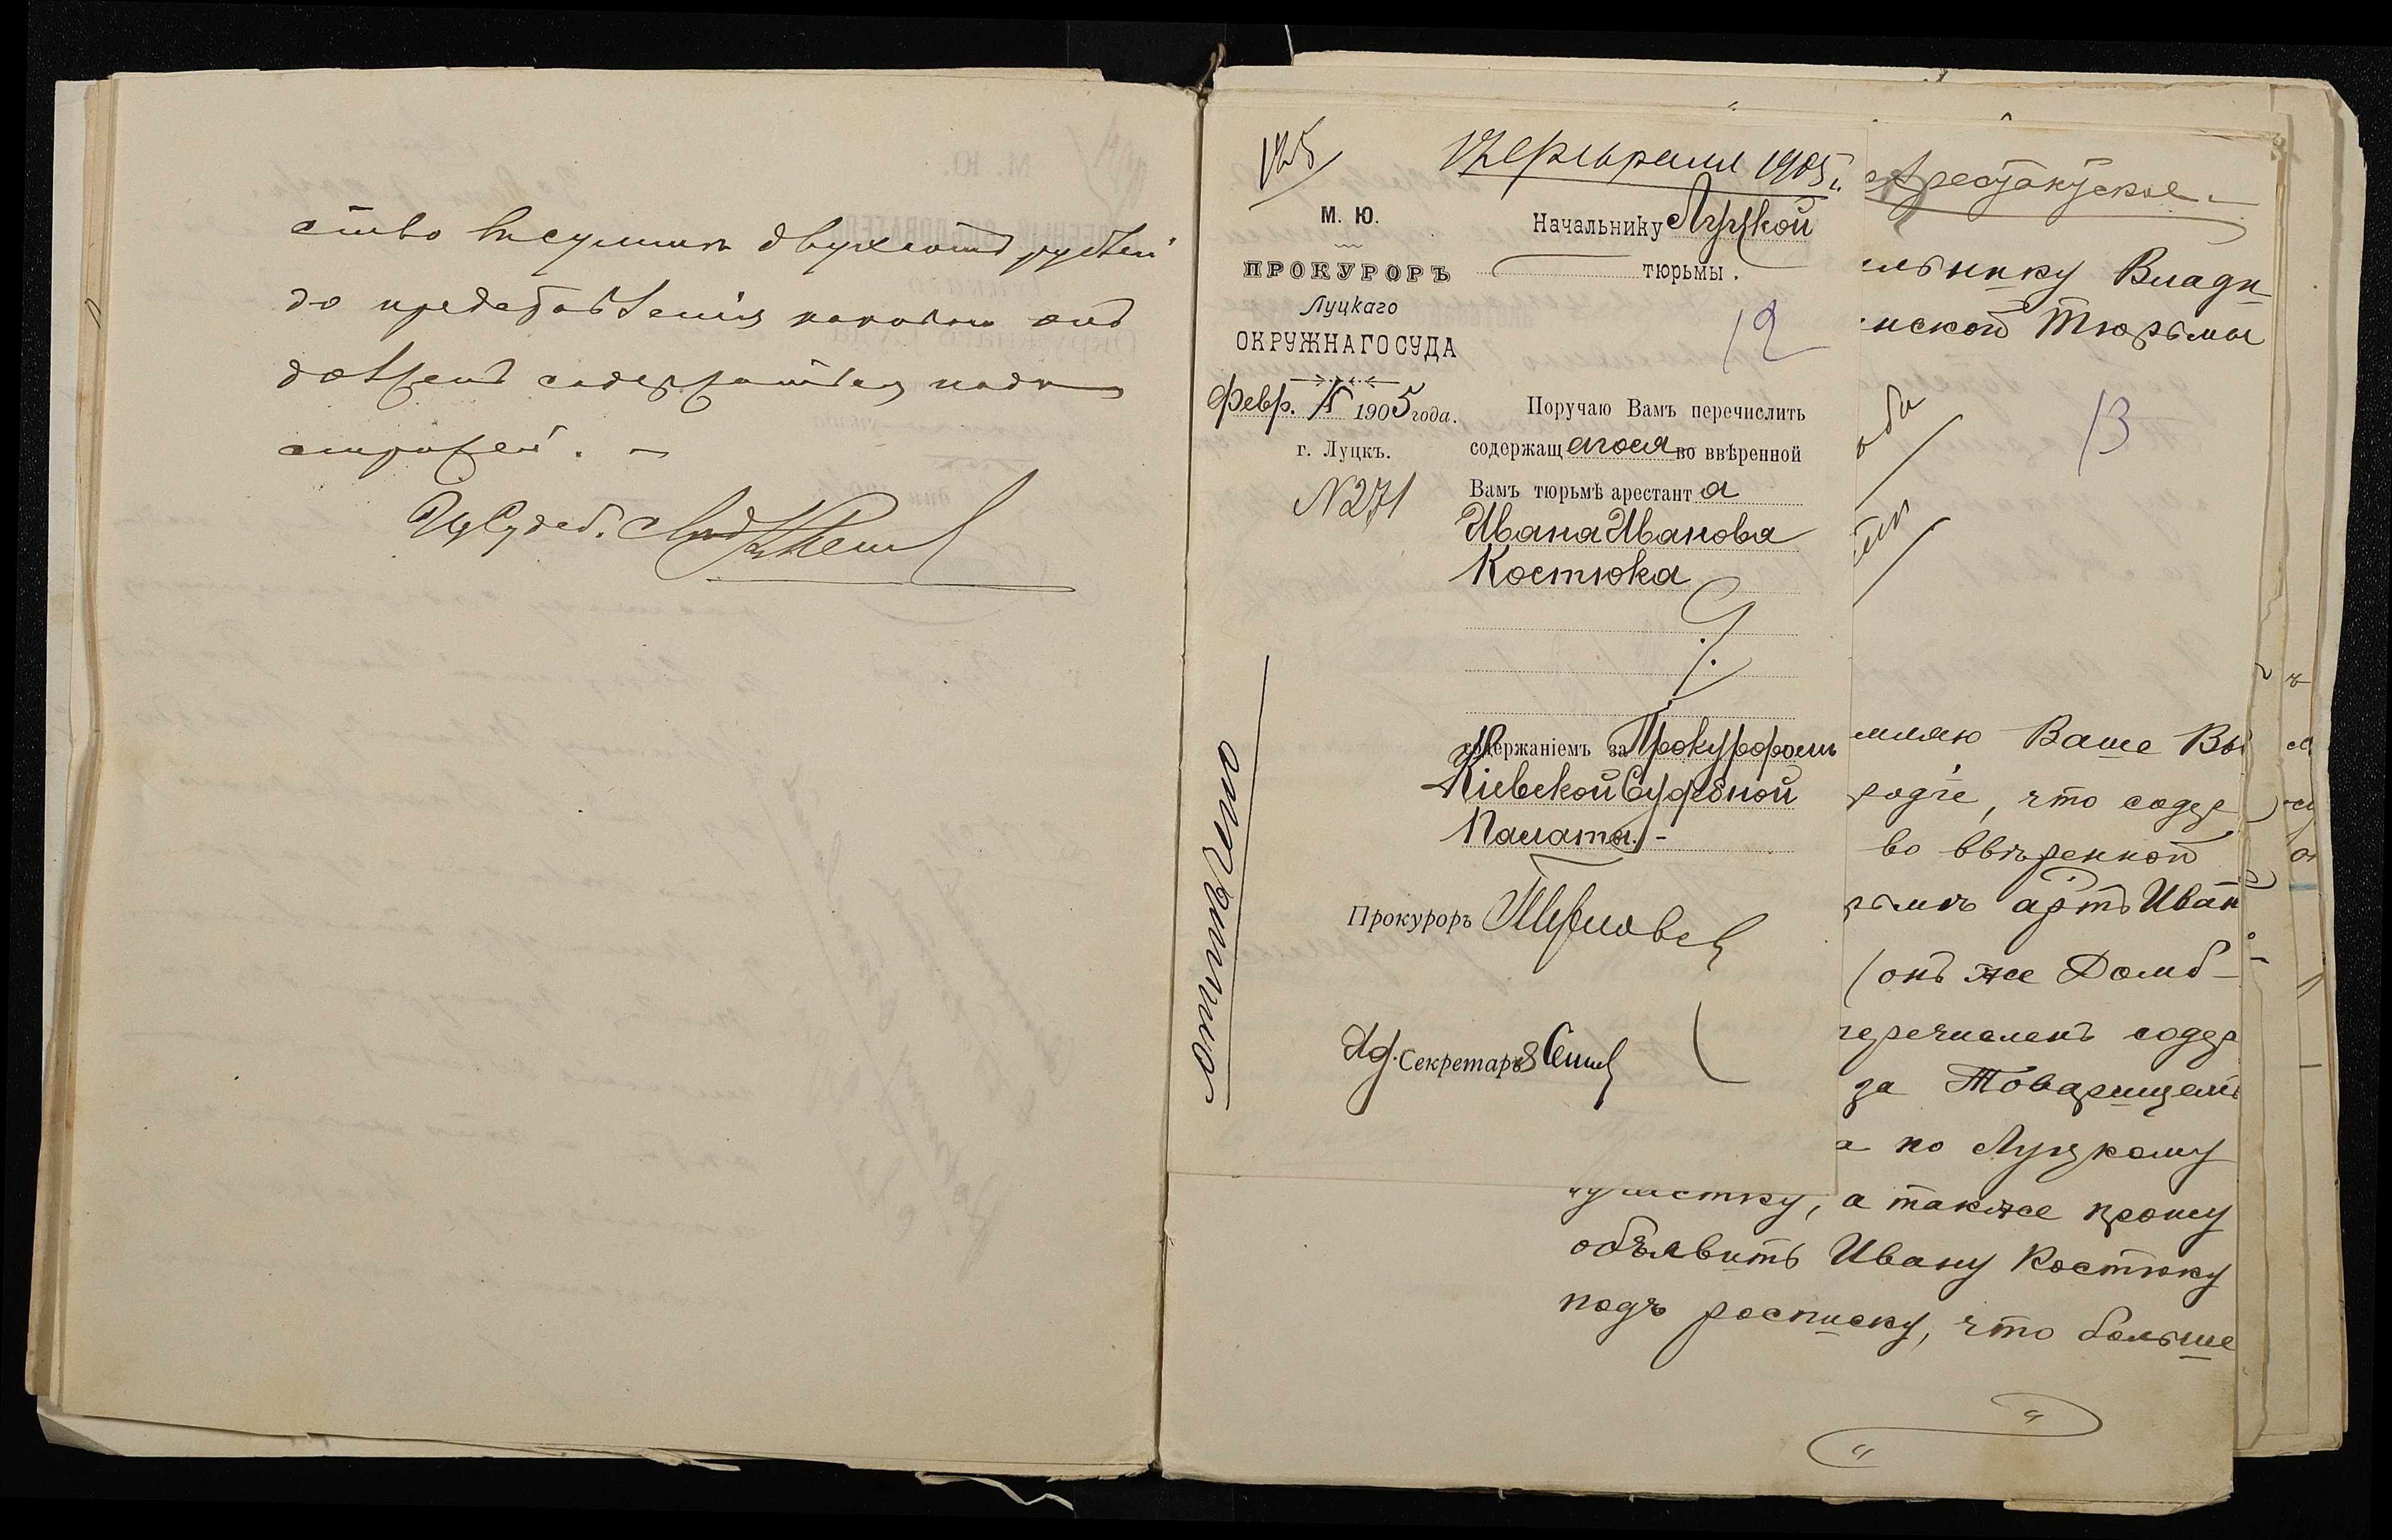 ство въ суммѣ двухсотъ рублей
до представленія каковой онъ
долженъ содержаться подъ
стражей. —
И. д. Судеб. Слѣд.
125
12 февраля 1905 г.
М. Ю.
ПРОКУРОРЪ
Луцкаго
ОКРУЖНАГО СУДА
Февр. 1905 года.
г. Луцкъ.
№ 271
Начальнику Луцкой
тюрьмы.
12
Поручаю Вамъ перечислить
содержащагося во ввѣренной
Вамъ тюрьмѣ арестанта
Ивана Иванова
Костюка
содержаніемъ за Прокуроромъ
Кіевской Судебной
Палаты. -
Прокуроръ
Ид. Секретарь
отмѣчено
Арестантское.
льнику Влади
нской Тюрьмы
13
мляю Ваше Вы
родіе, что содер
во ввѣренной
рьмѣ арт. Иван
(онъ же Домб-
перечисленъ содер
за Товарищемъ
а по Луцкому
участку, а также прошу
объявить Ивану Костюку
подъ росписку, что больше